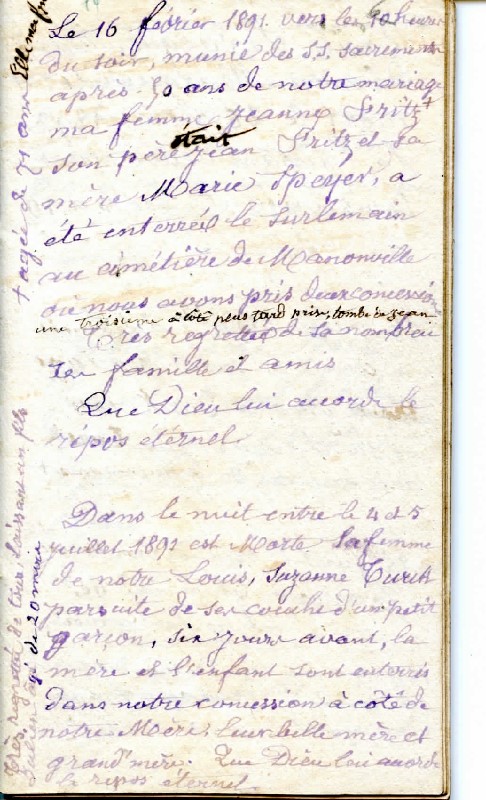 Le 16 février 1891 vers les 10 heures
du soir, munié des S.S. sacrements
après 50 ans de notre mariage
ma femme Jeanne Fritz +
était
son père Jean Fritz et sa
mère Marie Speyer, a
été enterrée le surlemain
au cimétière de Manonville
où nous avons pris deux concession
une troisième à côté plus tard prise, tombe de Jean
Très regrettée de sa nombreu
se famille et amis
Que Dieu lui accorde le
répos éternel
Dans le nuit entre le 4 et 5
juillet 1891 est Morte la femme
de notre Louis, Suzanne
par suite de ses couche d'un petit
garçon, six jours avant, la
mère et l'enfant sont enterris
dans notre concession à côté de
notre Mère, leur belle mère et
grand'mère. Que Dieu leui accorde
le repos éternel
+ agée de 71 ans
Très regretté de tous, laissant un fils
Julien agé de 20 mois